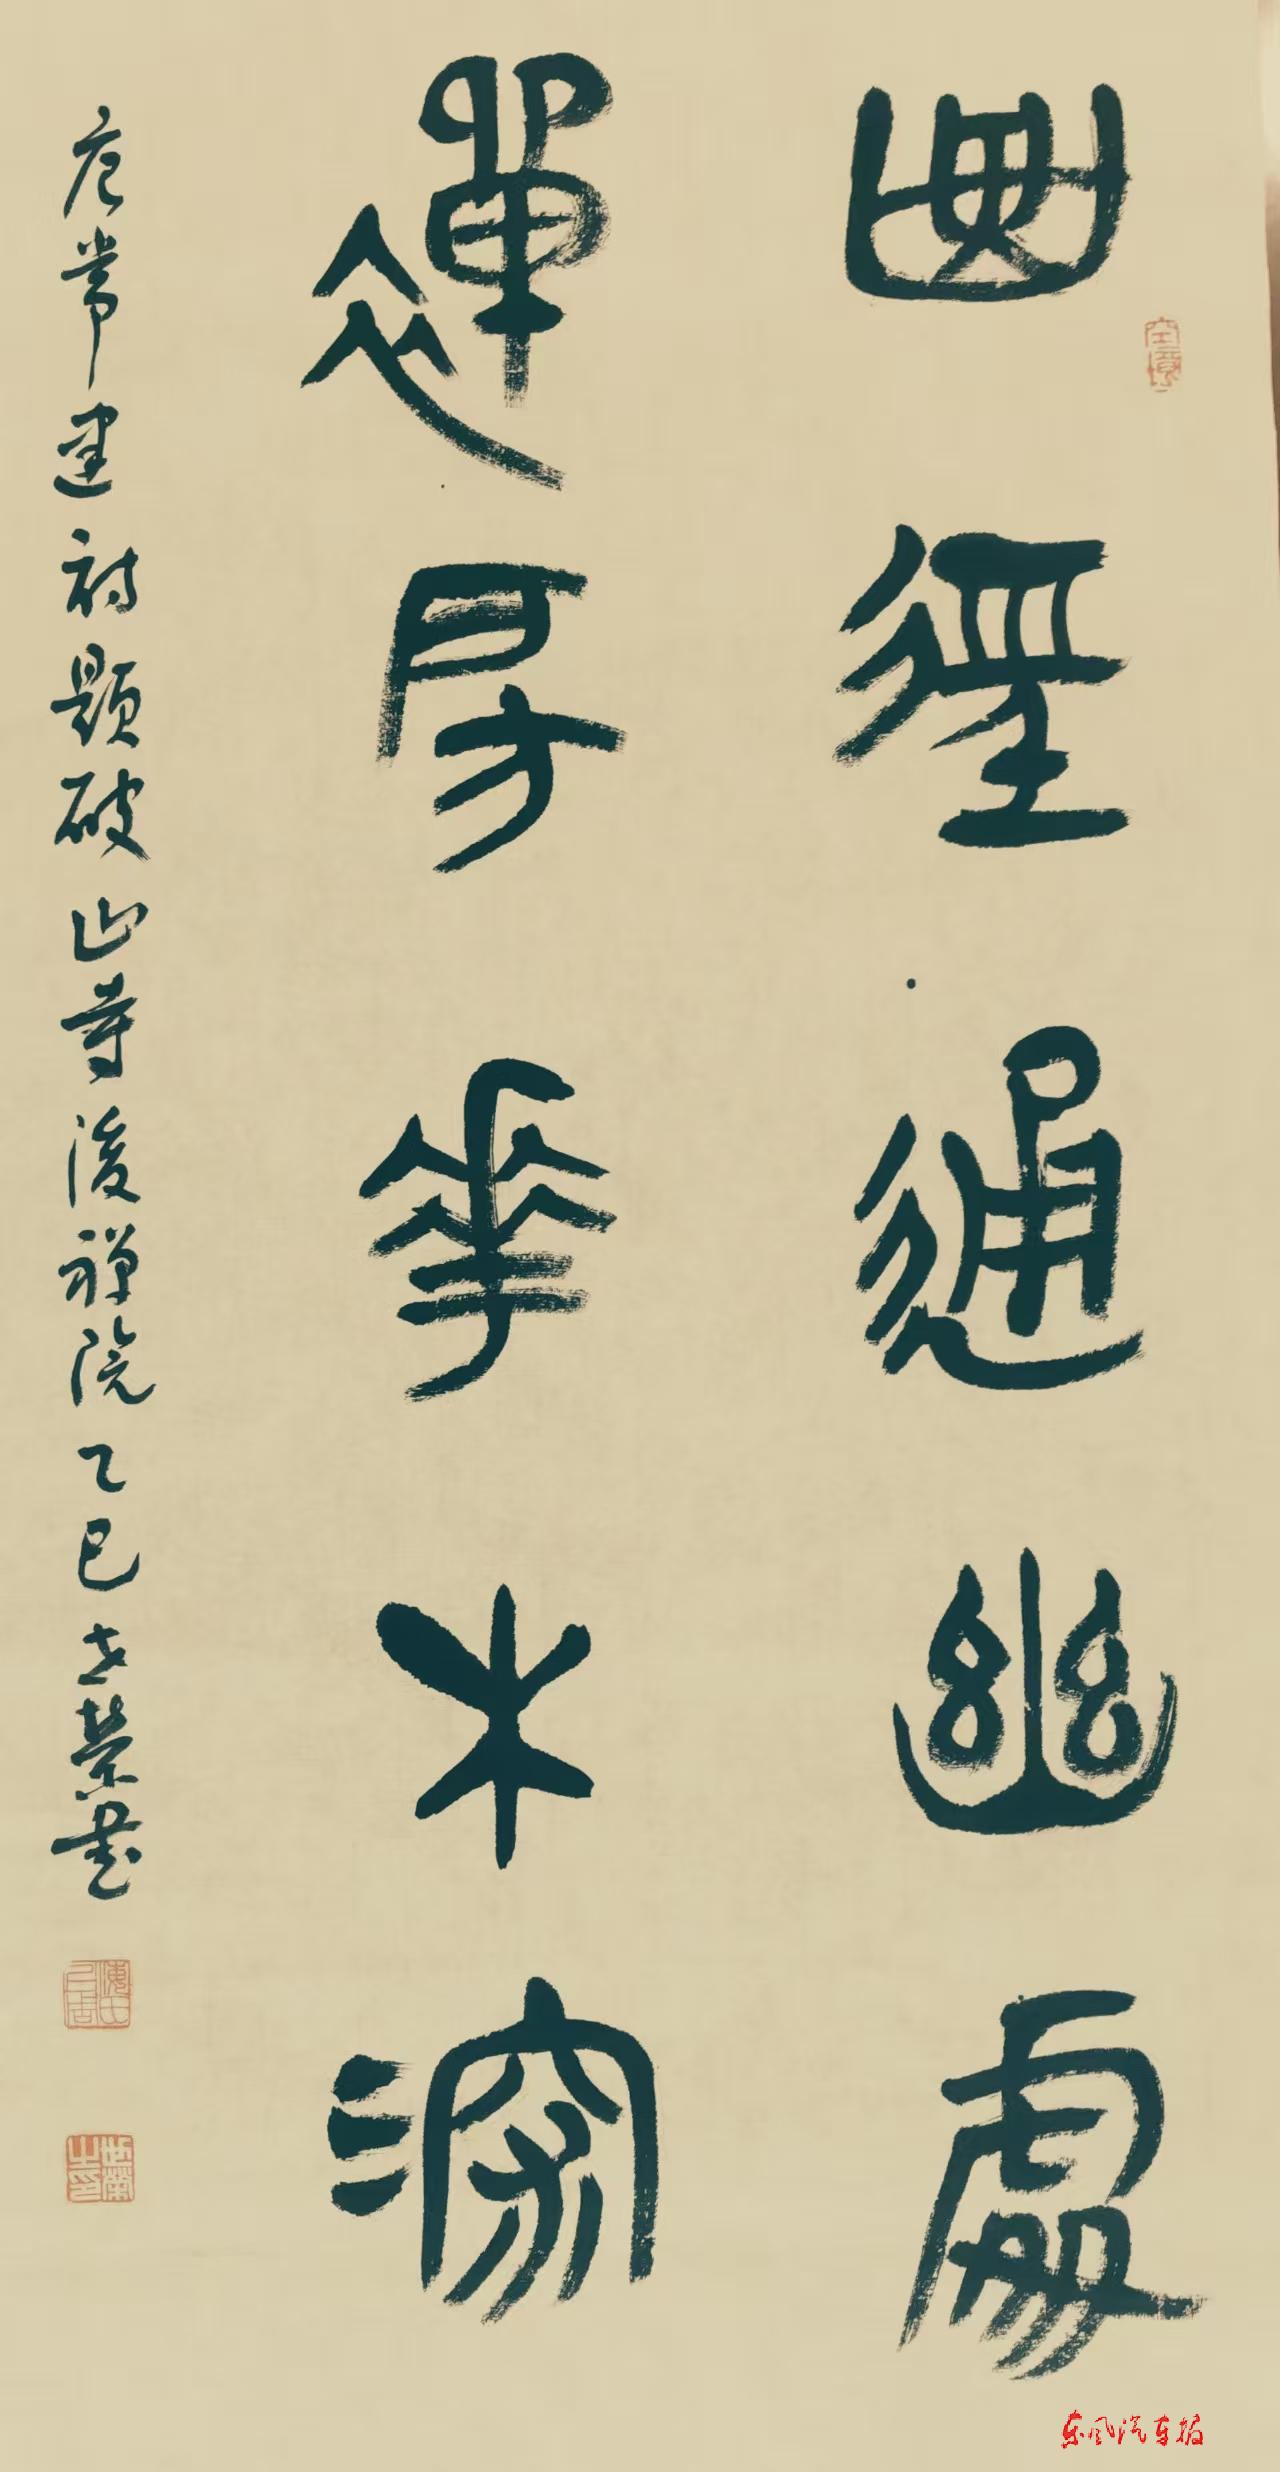 曲徑通幽處
禪房華木深
唐常建詩題破山寺後禪院乙巳世榮書
东风汽车报